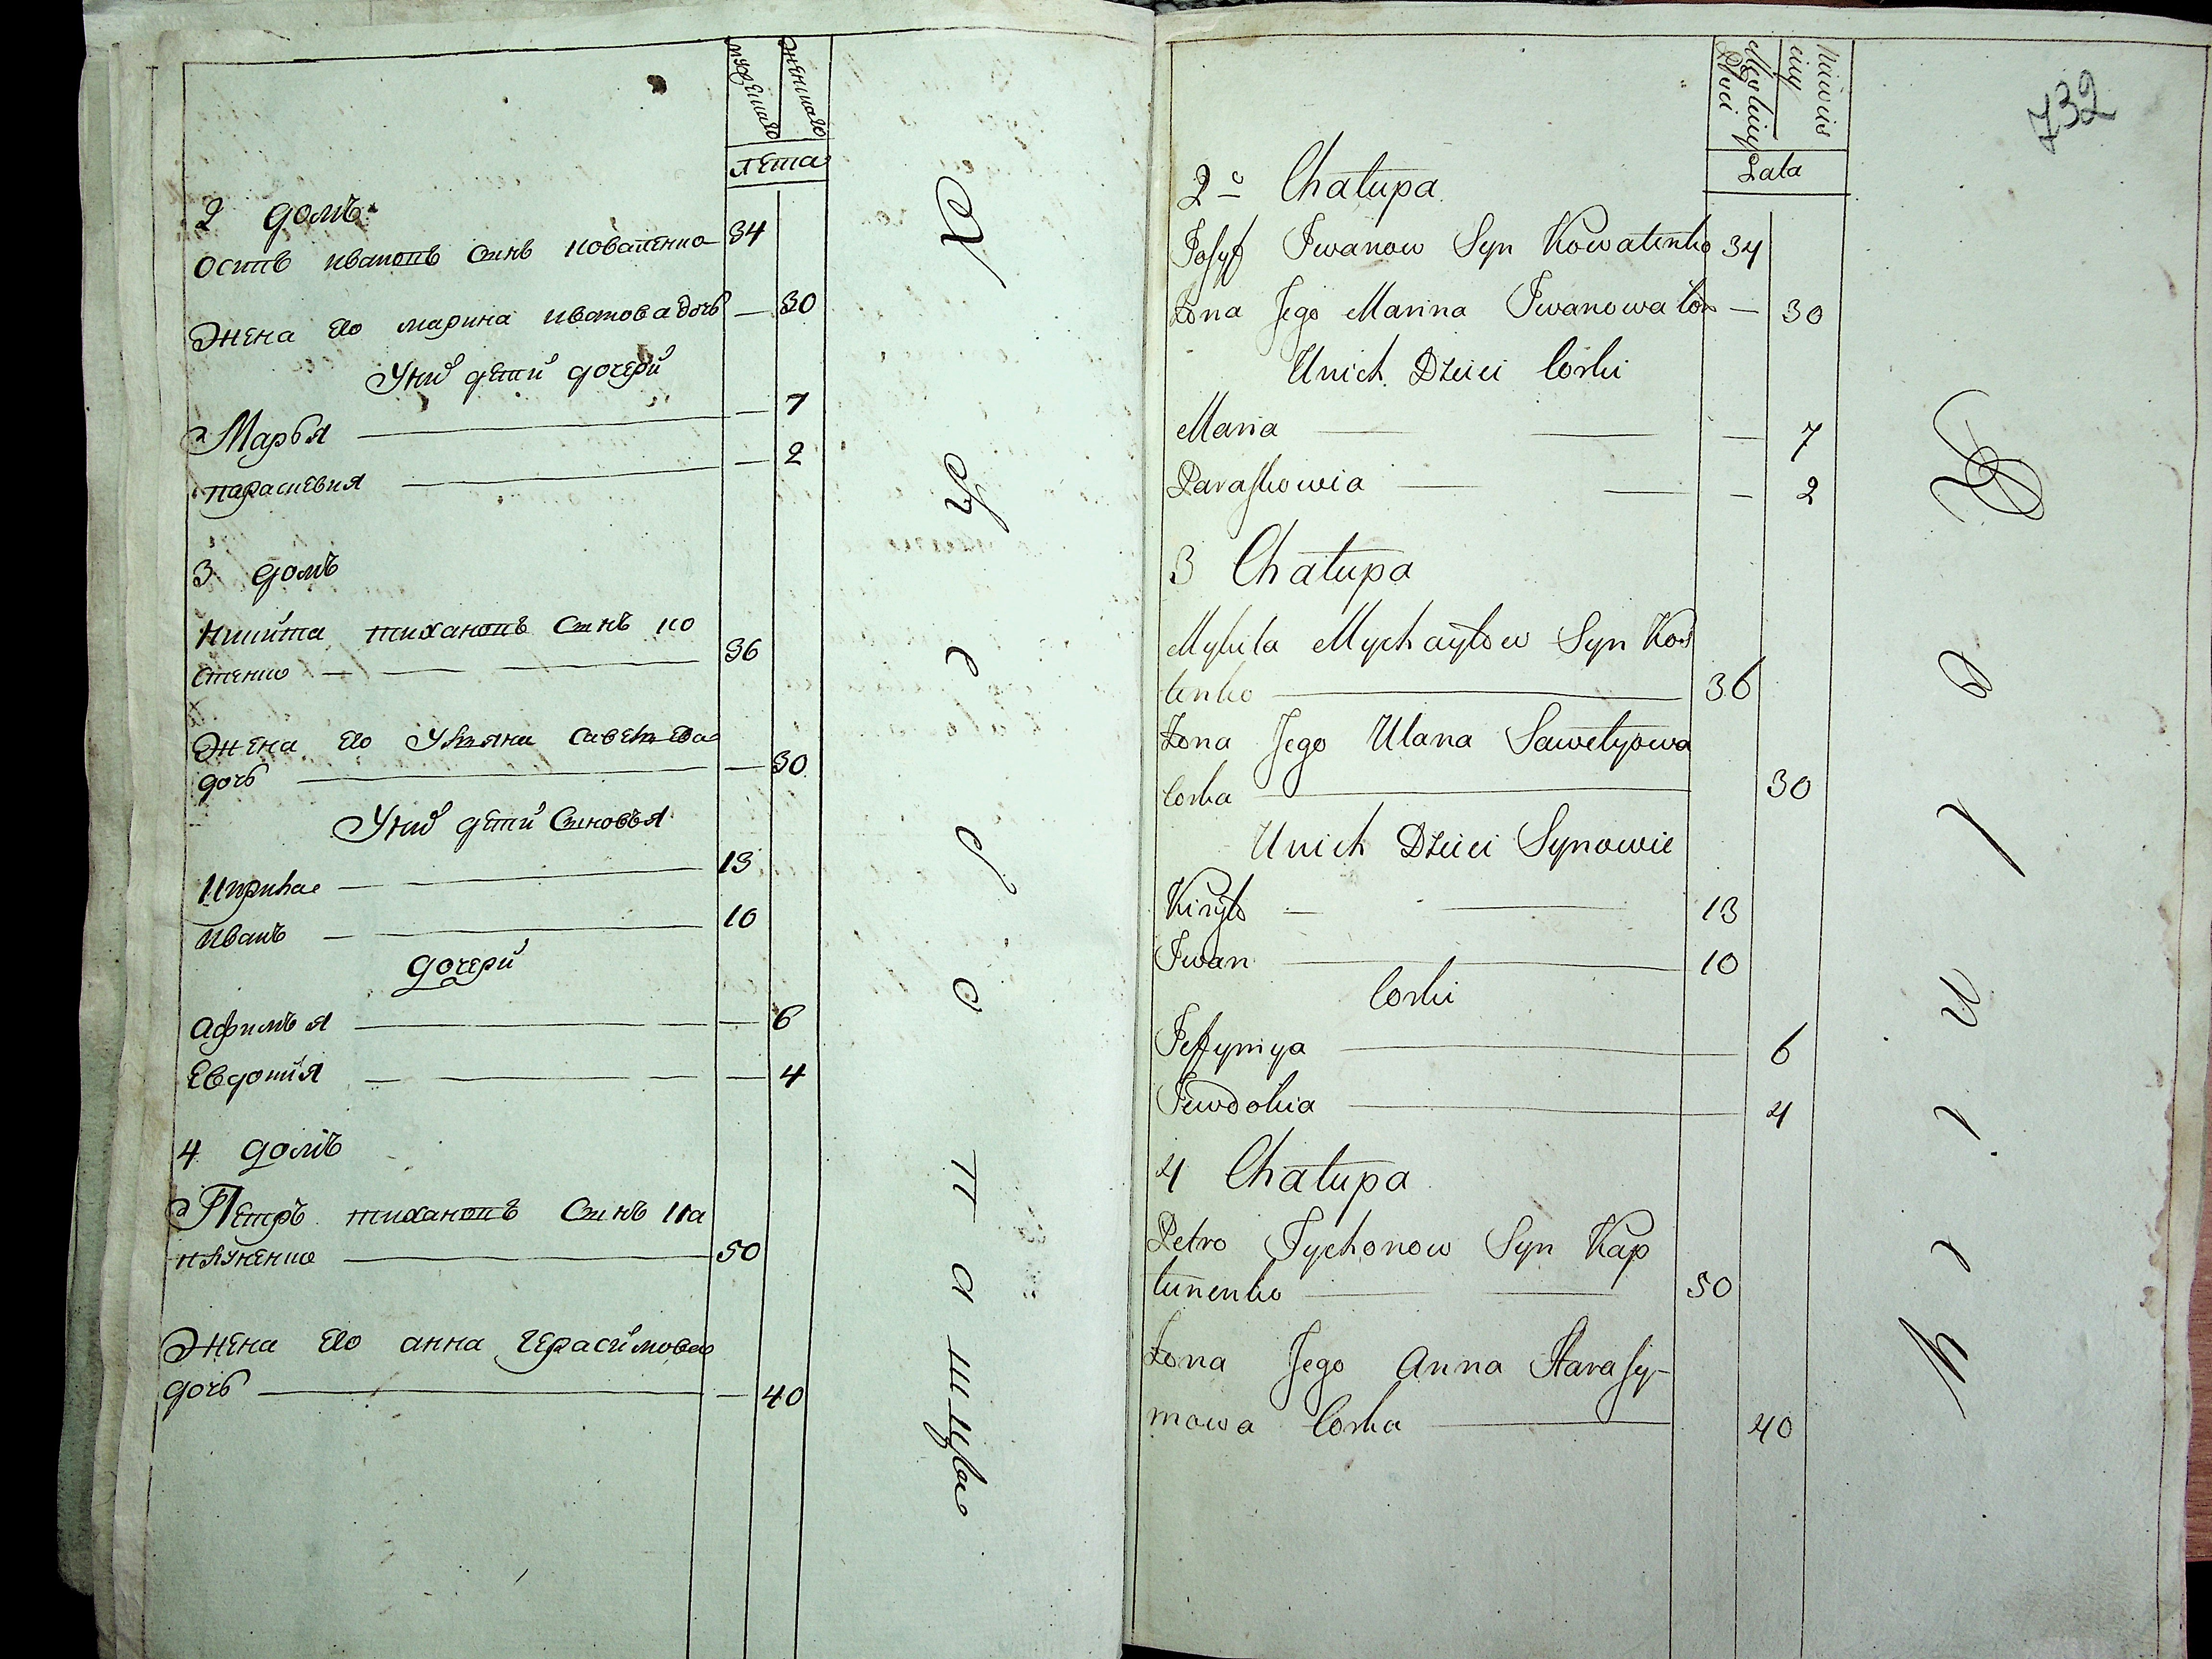 мужеска женска
лета
2 домъ
осипъ ивановъ синъ коваленко 34
жена его марина иванова дочь — 30
У них дети дочери
Марья — 7
параскевия — 2
3 домъ
Никита тихановъ синъ ко
стенко — 36
жена его Ульяна савельева
дочь — 30
У них дети синовья
Кирила — 13
иванъ — 10
дочери
афимья — 6
Евдотия — 4
4 домъ
Петръ тихановъ синъ ка
плуненко — 50
жена его анна герасимова
дочь — 40
732
Lata
2 Chałupa
Josyf Iwanow Syn Kowalenko 34
Żona Jego Marina Iwanowa Cor — 30
Unich Dzieci Corki
Maria — 7
Paraskowia — 2
3 Chałupa
Mykita Mychayłow Syn Kos
tenko — 36
Żona Jego Ulana Sawelyowa
Corka — 30
Unich Dzieci Synowie
Kiryło — 13
Iwan — 10
Corki
Jeffymya — 6
Jewdokia — 4
4 Chałupa
Petro Tychonow Syn Kap
łunenko — 50
Żona Jego Anna Harasy-
mowa Corka — 40